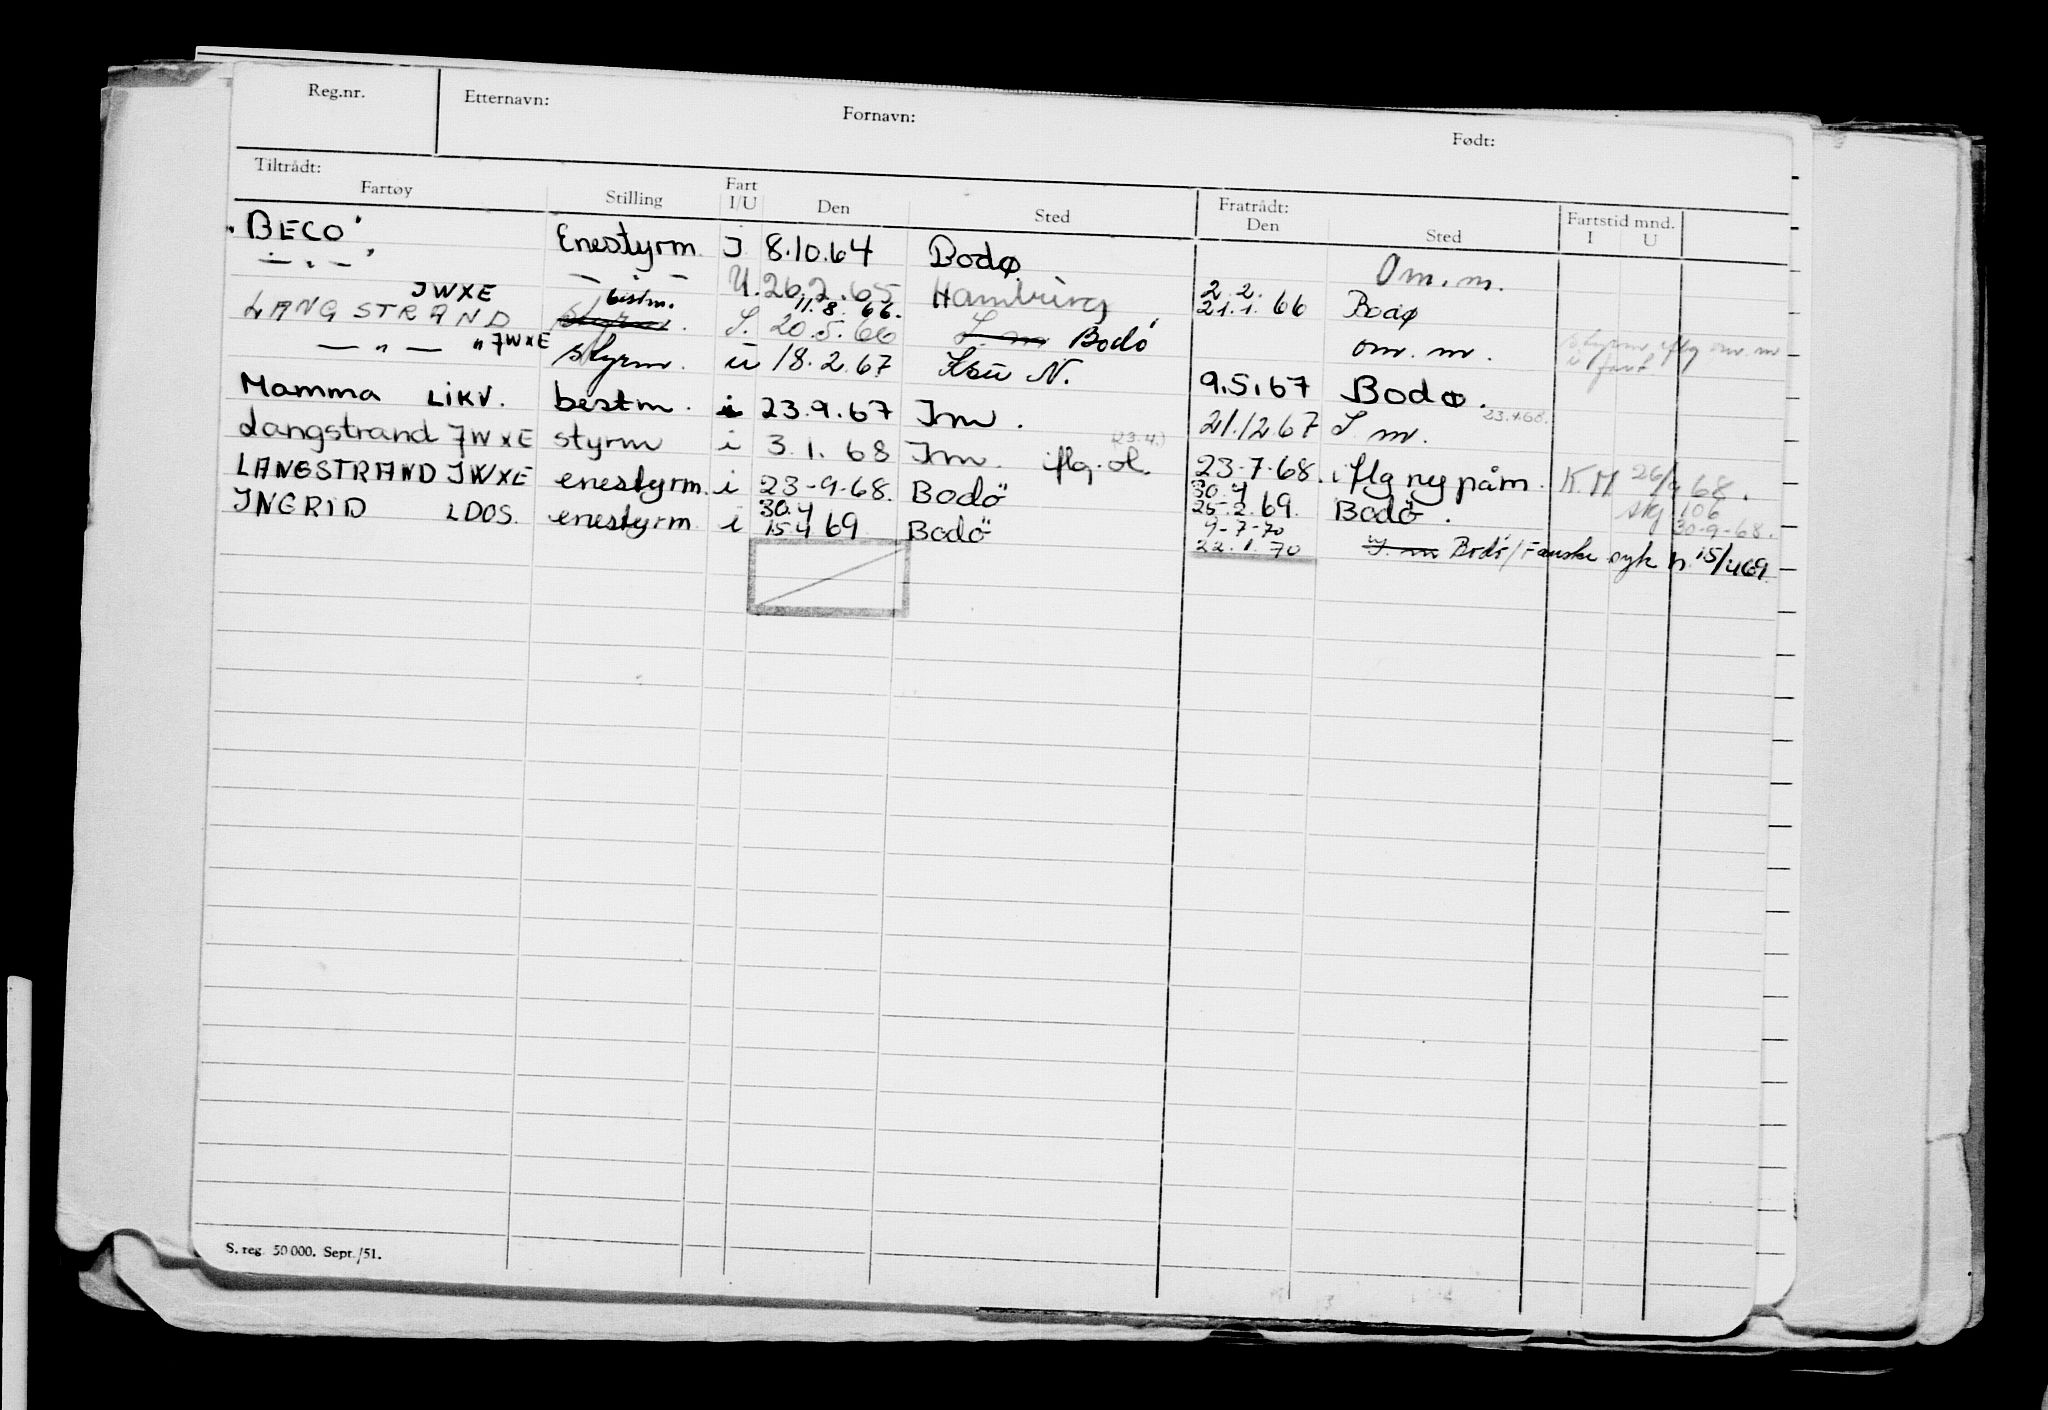 Reg.nr. Etternavn: Fornavn: Født:
Tiltrådt: Fratrådt: Fartstid mnd.
Fartøy Stilling Fart I/U Den Sted Den Sted I U
"BECO" Enestyrm. I 8.10.64 Bodø Om.m.
— " — — " — U. 26.2.65 Hamburg 2.2. 21.1.66 Bodø
JWXE bestm. 11.8.66.
LANGSTRAND styrm. I. 20.5.66 I. m Bodö om. m. styrm iflg om. m i fart
— " — " JWXE styrm. u 18.2.67 N. 9.5.67 Bodø.
Mamma LIKV. bestm. i 23.9.67 Im. 21.12.67 I m. 23.4.68.
Langstrand JWXE styrm i 3.1.68 Im. iflg. (23.4.) 23-7-68. iflg ny påm. K.M 26/9 68.
LANGSTRAND JWXE enestyrm. i 23-9-68. Bodö 30.4 25-2.69. Bodö. 106 30-9-68.
INGRID LDOS. enestyrm i 30.4 15.4 69 Bodö 9-7-70 22.1.70 I. m Bodö/Fauske syk h. 15/4 69.
S. reg. 50 000. Sept./51.